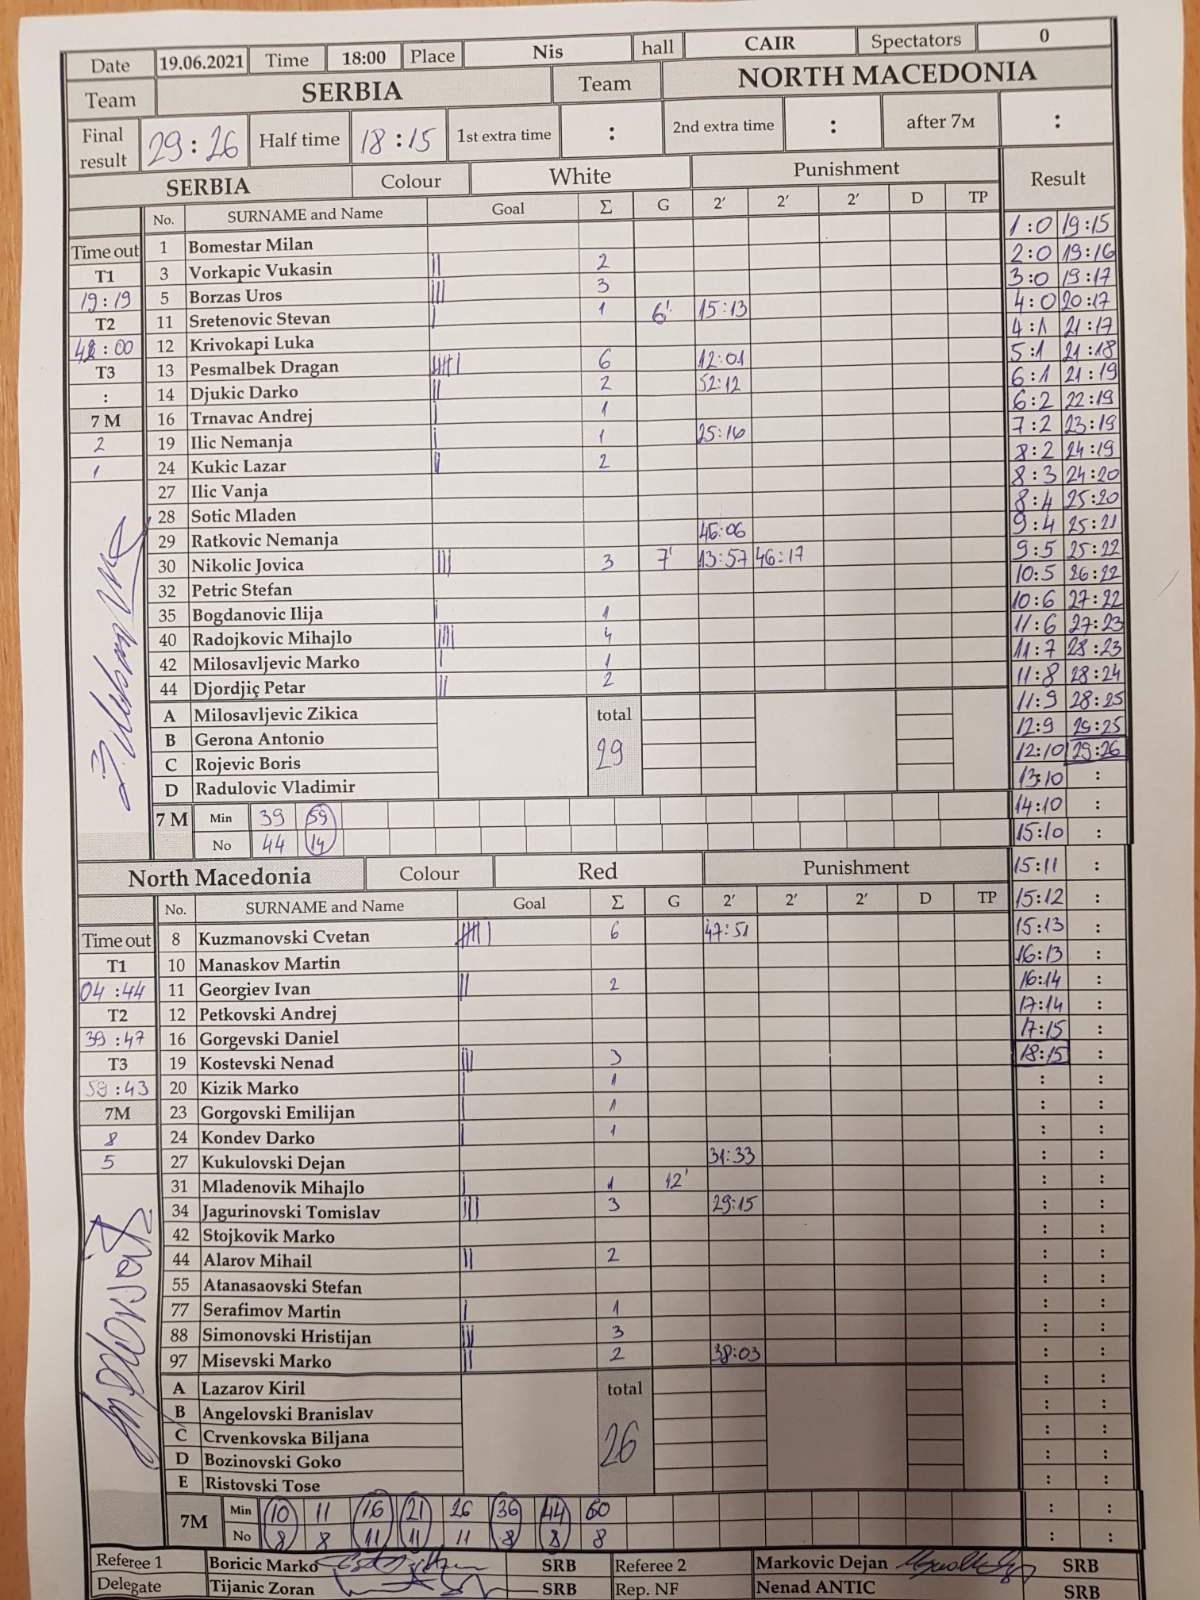 Date 19.06.2021 Time 18:00 Place Nis hall CAIR Spectators 0
Team SERBIA Team NORTH MACEDONIA
Final result 29:26 Half time 18:15 1st extra time : 2nd extra time : after 7M :
SERBIA Colour White Punishment Result
No. SURNAME and Name Goal Σ G 2' 2' 2' D TP
1:0 19:15
Time out 1 Bomestar Milan 2:0 19:16
T1 3 Vorkapic Vukasin || 2 3:0 19:17
19:19 5 Borzas Uros ||| 3 4:0 20:17
T2 11 Sretenovic Stevan | 1 6' 15:13 4:1 21:17
42:00 12 Krivokapi Luka 5:1 21:18
T3 13 Pesmalbek Dragan |||| | 6 12:01 6:1 21:19
: 14 Djukic Darko || 2 52:12 6:2 22:19
7 M 16 Trnavac Andrej | 1 7:2 23:19
2 19 Ilic Nemanja | 1 25:16 8:2 24:19
1 24 Kukic Lazar || 2 8:3 24:20
27 Ilic Vanja 8:4 25:20
28 Sotic Mladen 9:4 25:21
29 Ratkovic Nemanja 46:06 9:5 25:22
30 Nikolic Jovica ||| 3 7' 13:57 46:17 10:5 26:22
32 Petric Stefan 10:6 27:22
35 Bogdanovic Ilija | 1 11:6 27:23
40 Radojkovic Mihajlo |||| 4 11:7 28:23
42 Milosavljevic Marko | 1 11:8 28:24
44 Djordjiç Petar || 2 11:9 28:25
A Milosavljevic Zikica total 12:9 29:25
B Gerona Antonio 29 12:10 29:26
C Rojevic Boris 13:10 :
D Radulovic Vladimir 14:10 :
7 M Min 39 59 15:10 :
No 44 14
North Macedonia Colour Red Punishment 15:11 :
No. SURNAME and Name Goal Σ G 2' 2' 2' D TP 15:12 :
Time out 8 Kuzmanovski Cvetan |||| | 6 47:51 15:13 :
T1 10 Manaskov Martin 16:13 :
04:44 11 Georgiev Ivan || 2 16:14 :
T2 12 Petkovski Andrej 17:14 :
39:47 16 Gorgevski Daniel 17:15 :
T3 19 Kostevski Nenad ||| 3 18:15 :
59:43 20 Kizik Marko | 1 : :
7M 23 Gorgovski Emilijan | 1 : :
8 24 Kondev Darko | 1 : :
5 27 Kukulovski Dejan 31:33 : :
31 Mladenovik Mihajlo | 1 12' : :
34 Jagurinovski Tomislav ||| 3 29:15 : :
42 Stojkovik Marko : :
44 Alarov Mihail || 2 : :
55 Atanasaovski Stefan : :
77 Serafimov Martin | 1 : :
88 Simonovski Hristijan ||| 3 : :
97 Misevski Marko || 2 38:03 : :
A Lazarov Kiril total : :
B Angelovski Branislav 26 : :
C Crvenkovska Biljana : :
D Bozinovski Goko : :
E Ristovski Tose : :
7M Min 10 11 16 21 26 36 44 60 : :
No 8 8 11 11 11 8 8 8 : :
Referee 1 Boricic Marko SRB Referee 2 Markovic Dejan SRB
Delegate Tijanic Zoran SRB Rep. NF Nenad ANTIC SRB